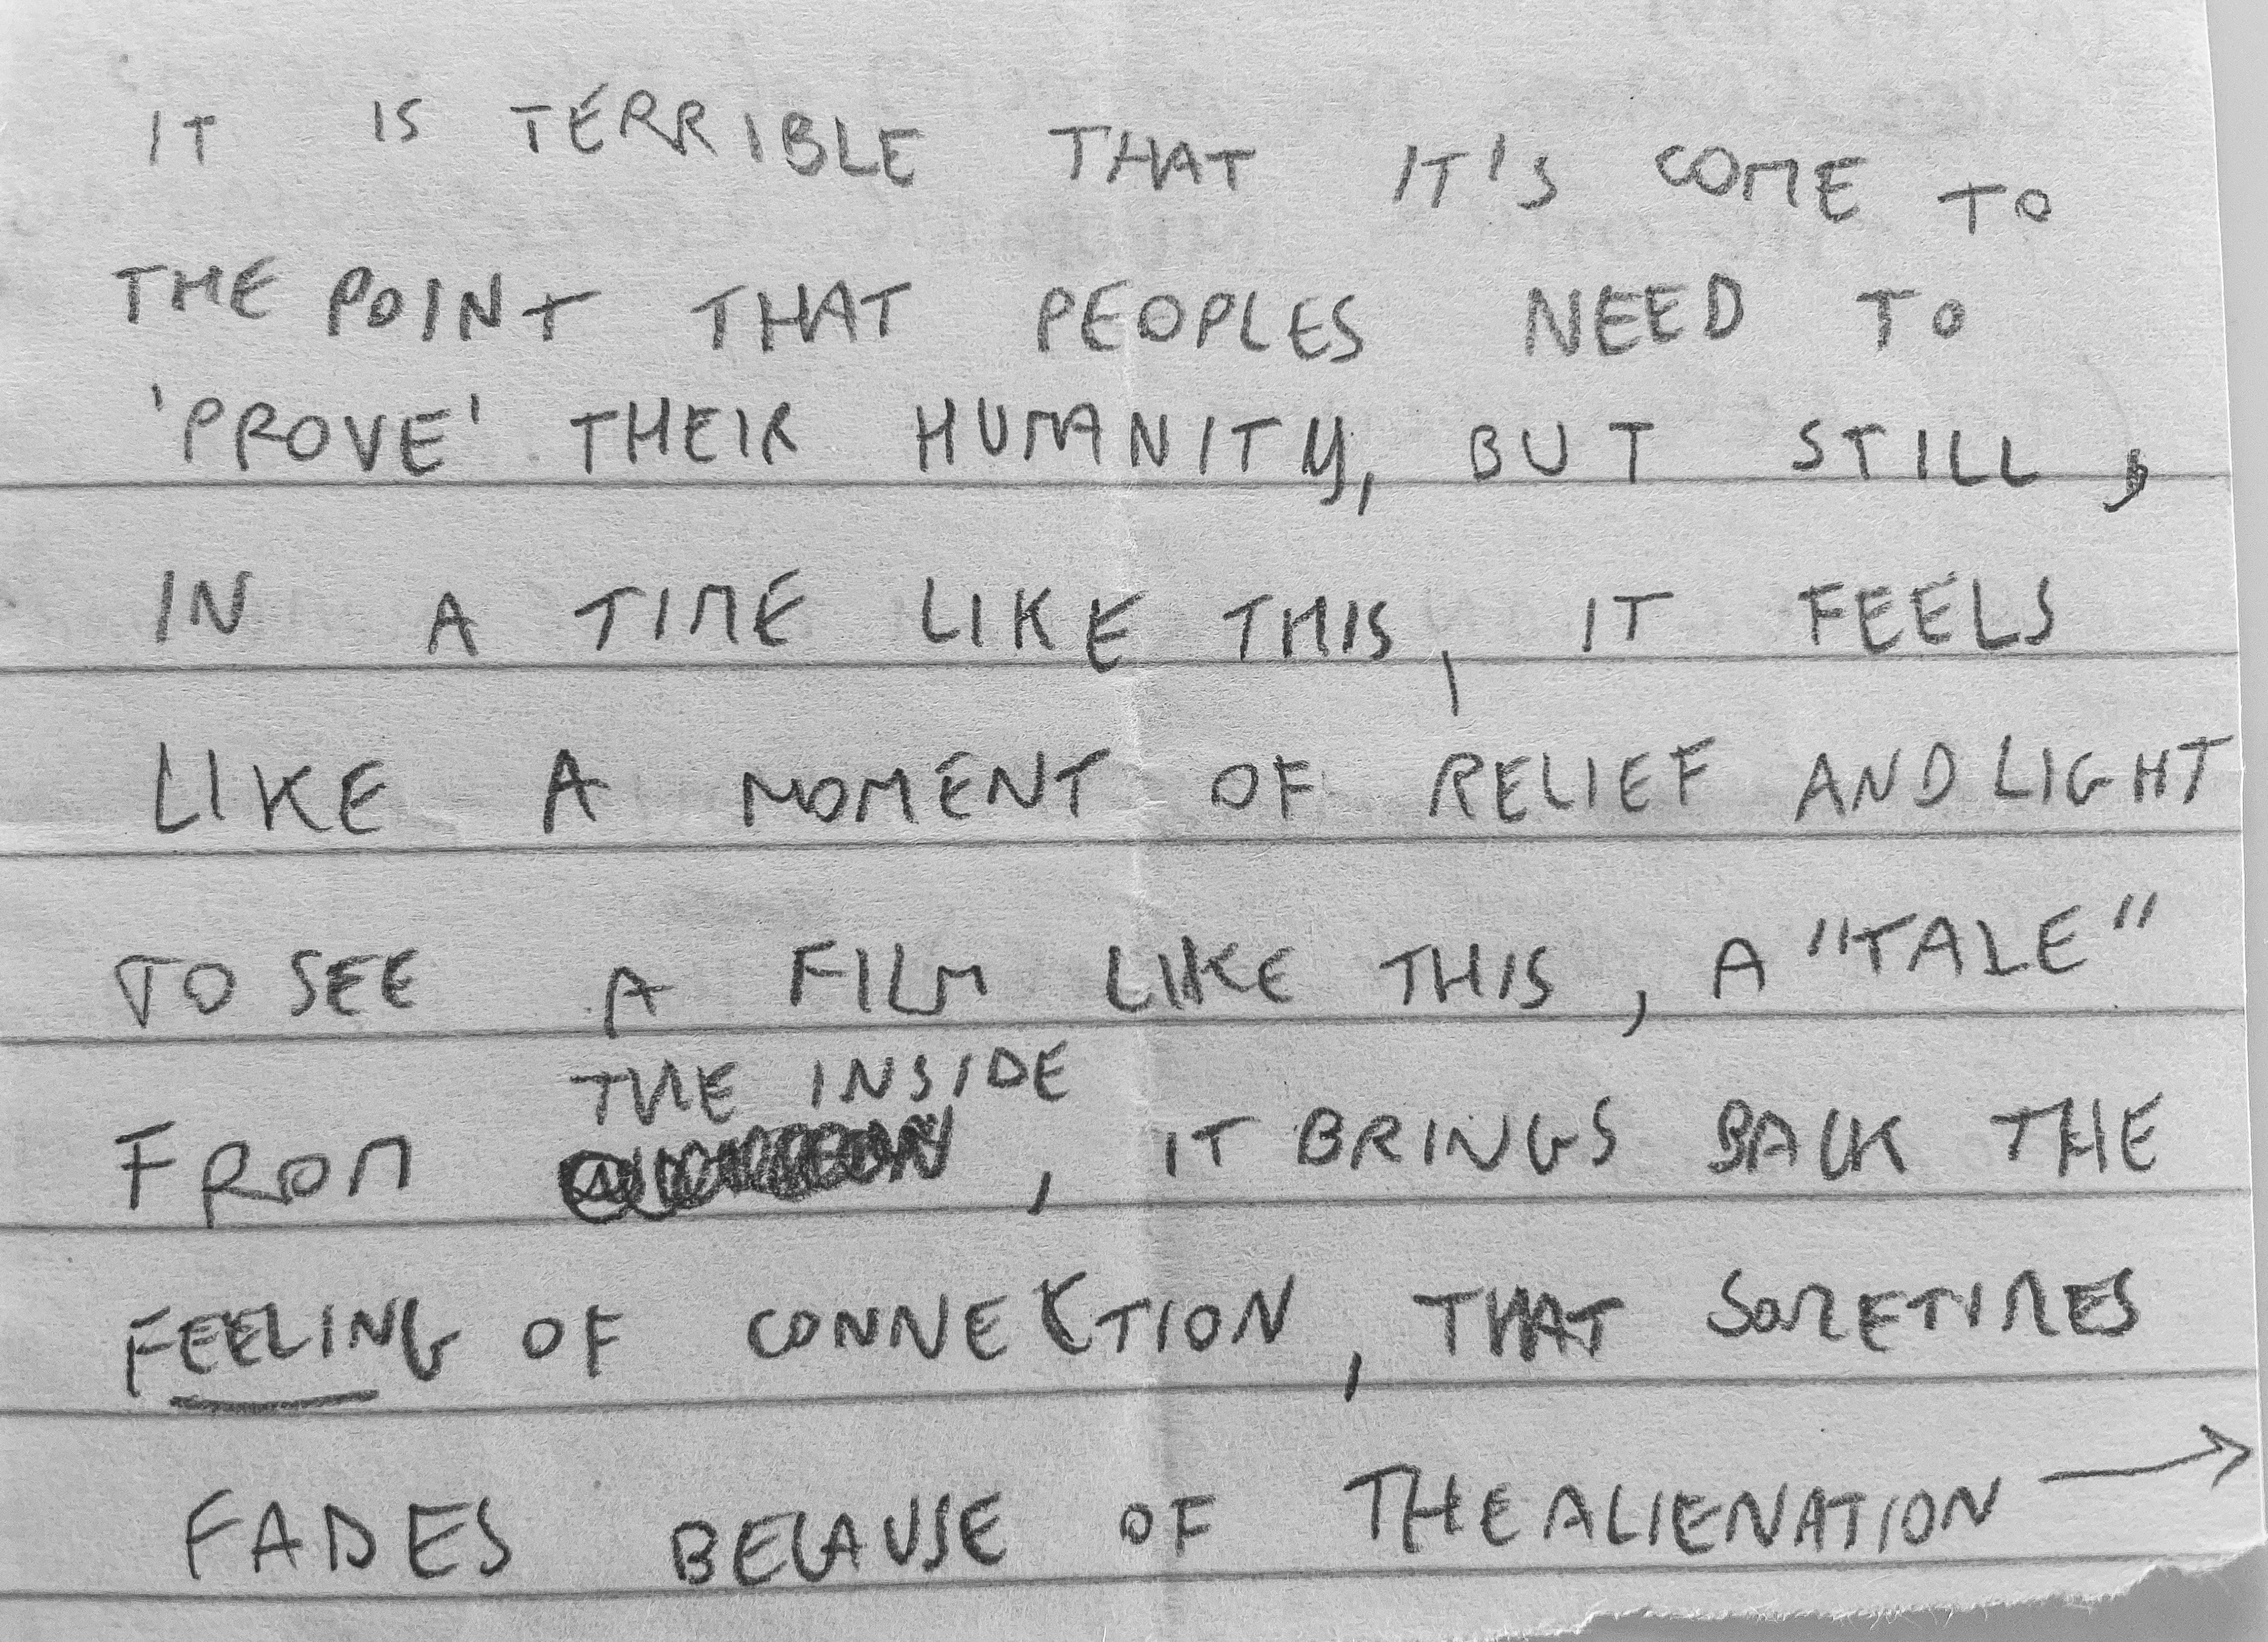 IT IS TERRIBLE THAT IT'S COME TO
THE POINT THAT PEOPLES NEED TO
'PROVE' THEIR HUMANITY, BUT STILL,
IN A TIME LIKE THIS, IT FEELS
LIKE A MOMENT OF RELIEF AND LIGHT
TO SEE A FILM LIKE THIS, A "TALE"
THE INSIDE
FROM , IT BRINGS BACK THE
FEELING OF CONNECTION, THAT SOMETIMES
FADES BECAUSE OF THE ALIENATION →